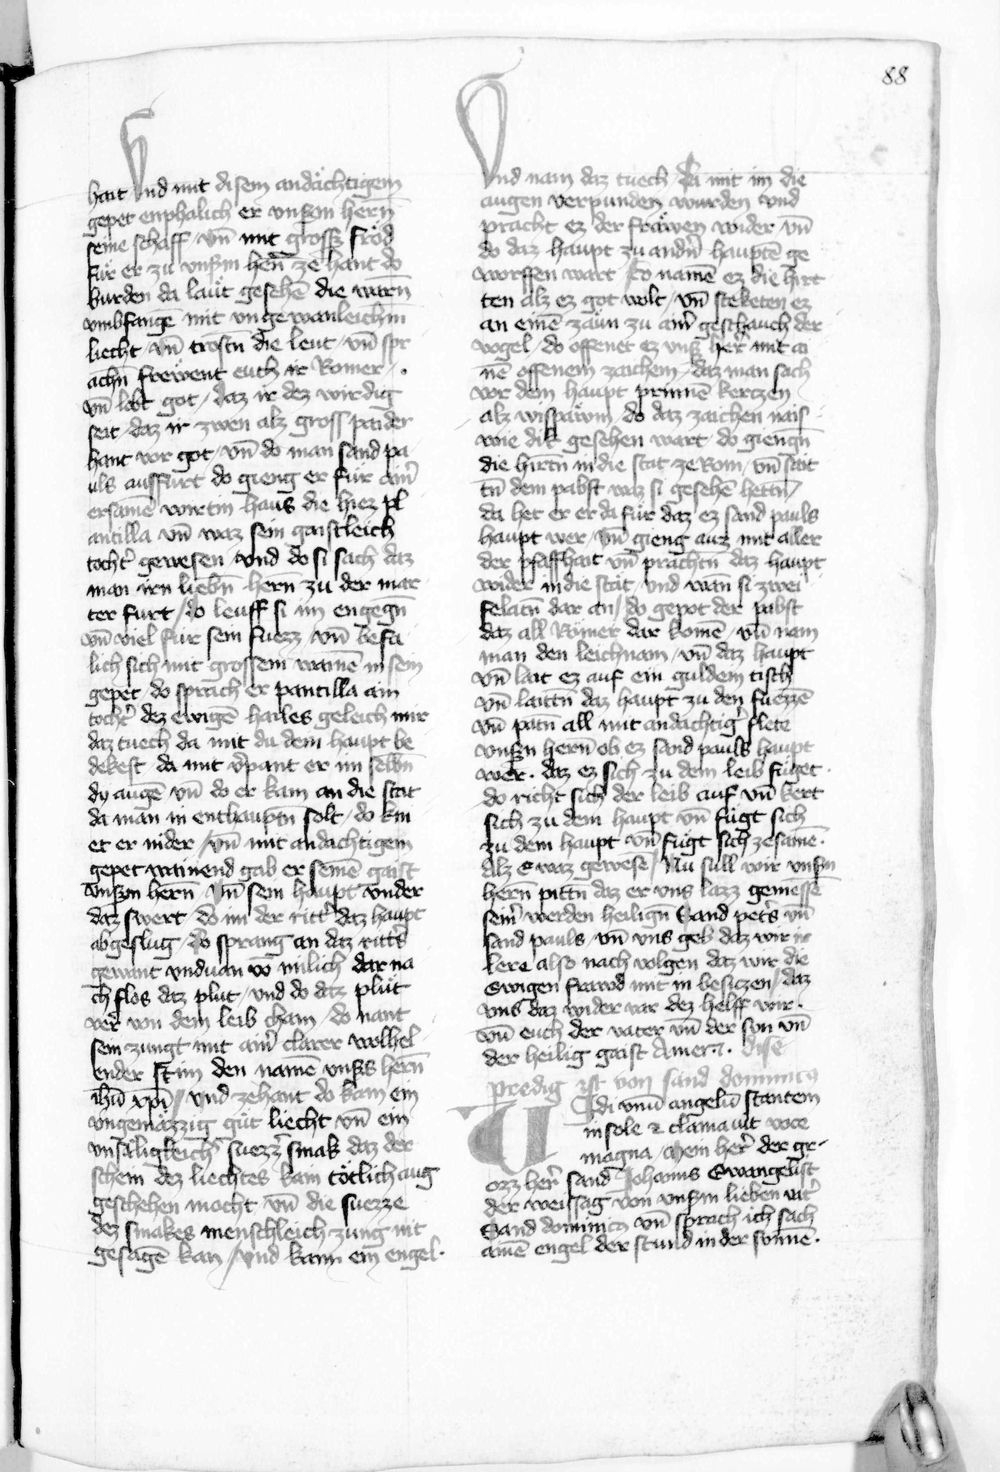 88
hait Vnd mit disem andächtigem
gepet enphalich er vnſm hern̄
seine schaff / vn̄ mit grosſz fröd
fur er zu vnſm hern̄ ze hant do
burden da laüt gesehē die warn̄
vmbfangē mit vngewanleichm̄
liecht / vn̄ trostn̄ die leut / vn̄ spr
achn̄ frëwent euch ir Romer / .
vn̄ lobt got / daz ir dez wirdig
seit / daz ir zwen alz gross pander
hant vor got / vn̄ do man sand pa
uls ausfurt do gieng er für ain̾
ersamē wirtin haus die hiez pl
antilla vn̄ waz sein gaistleich
tocht̾ gewesen / vnd do si sach daz
man irn liebn̄ hern zu der mar
ter furt / do leuff si im engegn̄
vn̄ viel fur sein fuezz / vn̄ befa
lich sich mit grossem wainē in sein
gepet / do sprach er pantilla ain
tocht̾ dez ewigē hailes geleich mir
daz tuech da mit du dem haupt be
dekest / da mit v̄pant er im selbn̄
dy augē vn̄ do er kam an die stat
da man in enthauptn̄ solt / do kni
et er nider / vn̄ mit andachtigem
gepet wainend gab er seinē gaist
vnſm hern̄ / vn̄ sein haupt vnder
daz swert / do im der ritt̾ daz haupt
abgeslug / do sprang an daz ritt̾s
gewant vnduan vō milich dar na
ch flos daz plut / vnd do daz plüt
ver von dem leib cham / do nant
sein zungt mit ain̾ clarer wolhel
ender stim den namē vnſs hern̄
ihū xp̄i / vnd zehant do kam ein
vngemäzzig güt liecht vn̄ ein
vnsäligkeich̾ suezz̾ smak daz der
schein dez liechtes kain tötlich aug
geschehen mocht vn̄ die suezze
dez smakes menschleich zung nit
gesagē kan / vnd kam ein engel .
Vnd nam daz tuech / da mit im die
augen verpunden wurden vnd
pracht ez der fräwen wider vn̄
do daz haupt zu andn̾ hauptē ge
worffen wart / do namē ez die hirt
ten alz ez got wolt / vn̄ steketen ez
an einē zäun zu aim̾ geschauch der
vogel / do offenet ez vnſ her̾ mit ai
nē offenem zaichem / daz man sach
vor dem haupt prinnē kerczen
alz wispäwm / do daz zaichen nais
wie dik gesehen wart / do giengn̄
die hirtn̄ in die stat ze Rom / vn̄ sait
tn̄ dem pabst waz si gesehē hettn̄ /
da het er er da fur daz ez sand pauls
haupt wer / vn̄ gieng auz mit aller
der pfaffhait vn̄ prachtn̄ daz haupt
wider in die stat / vnd wan si zwei
felatn̄ dar an / do gepot der pabst
daz all Römer dar komē / vn̄ nam
man den leichnam / vn̄ daz haupt
vn̄ lait ez auf ein guldein tisch
vn̄ laittn̄ daz haupt zu den fuezzē
vn̄ patn̄ all mit andachtig̾ flete
vnſn hern ob ez sand pauls haupt
wër . daz ez sich zu dem leib füget .
do richt sich der leib auf vn̄ kert
sich zu dem haupt vn̄ fügt sich
zu dem haupt vn̄ fügt sich zesamē .
alz e waz gewese / Nu sull wir vnſm
hern̄ pittn̄ daz er vns lazz geniessē
sein̾ werden heilign̄ Sand pet̾s vn̄
sand pauls / vn̄ vns geb daz wir ir
lere also nach volgen daz wir die
ewigen fräwd mit in besiczen / daz
vns daz wider var dez helff wir .
vn̄ euch der vater vn̄ der sun vn̄
der heilig gaist Amen . Disē
predig ist von sand dominics
Uidi vnū angelū stantem
in sole & clamauit voce
magna / Mein her̾ der gr
ozz her̾ sand Johanns Ewangelist
der weissag von vnſm lieben vat̾
Sand dominics vn̄ sprach ich sach
ainē engel der stund in der sonne .